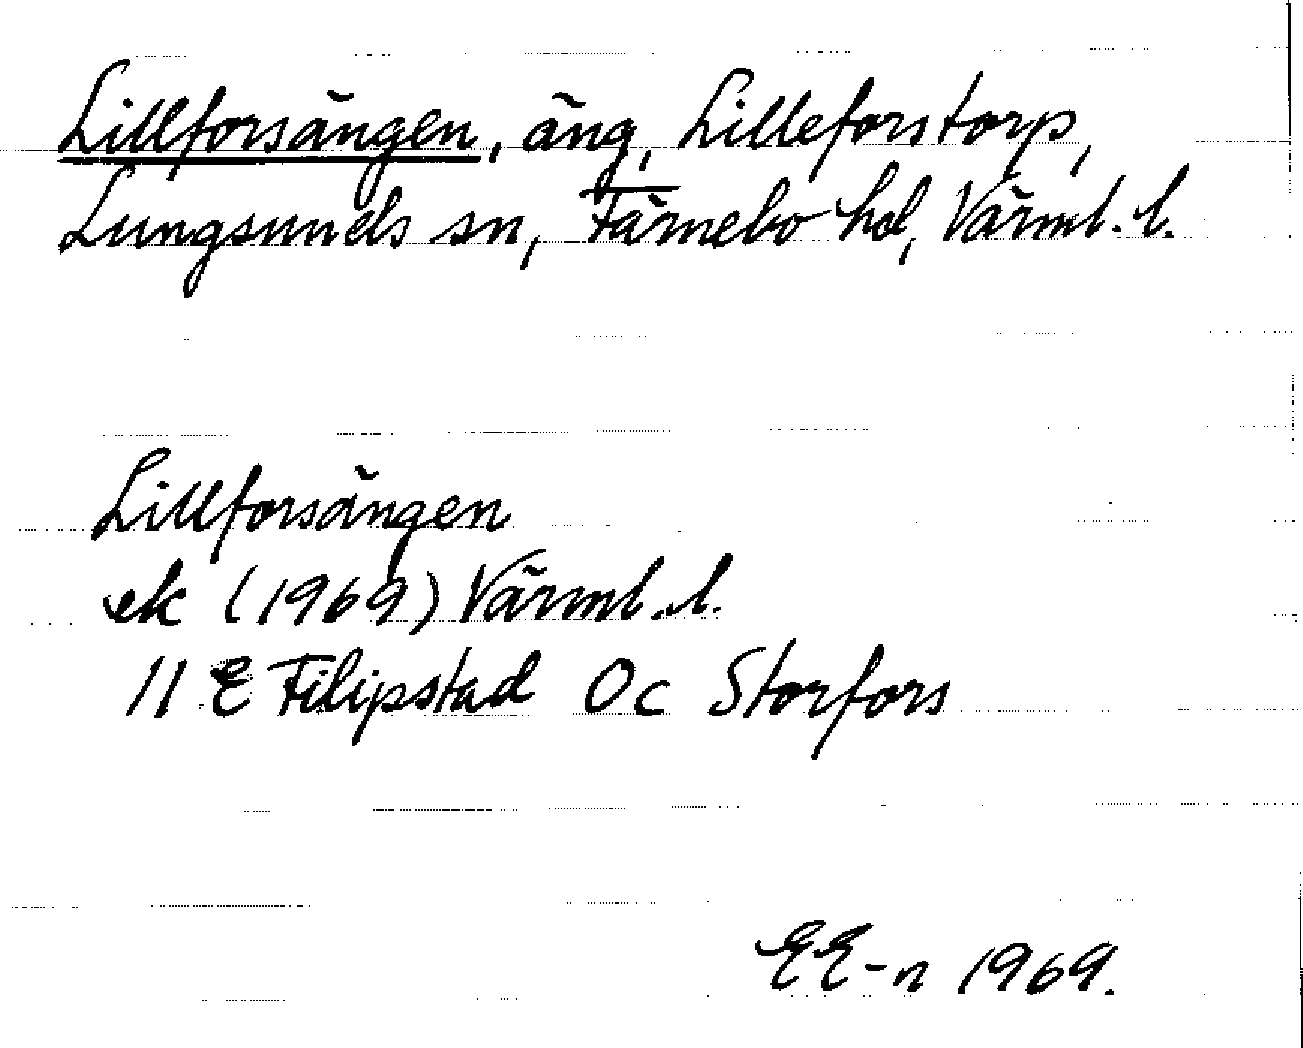 Lillforsängen, äng, Lilleforstorp,
Lungsunds sn, Färnebo hd, Värml. l.
Lillforsängen
ek (1969) Värml. l.
11 E Filipstad 0c Storfors
EE-n 1969.